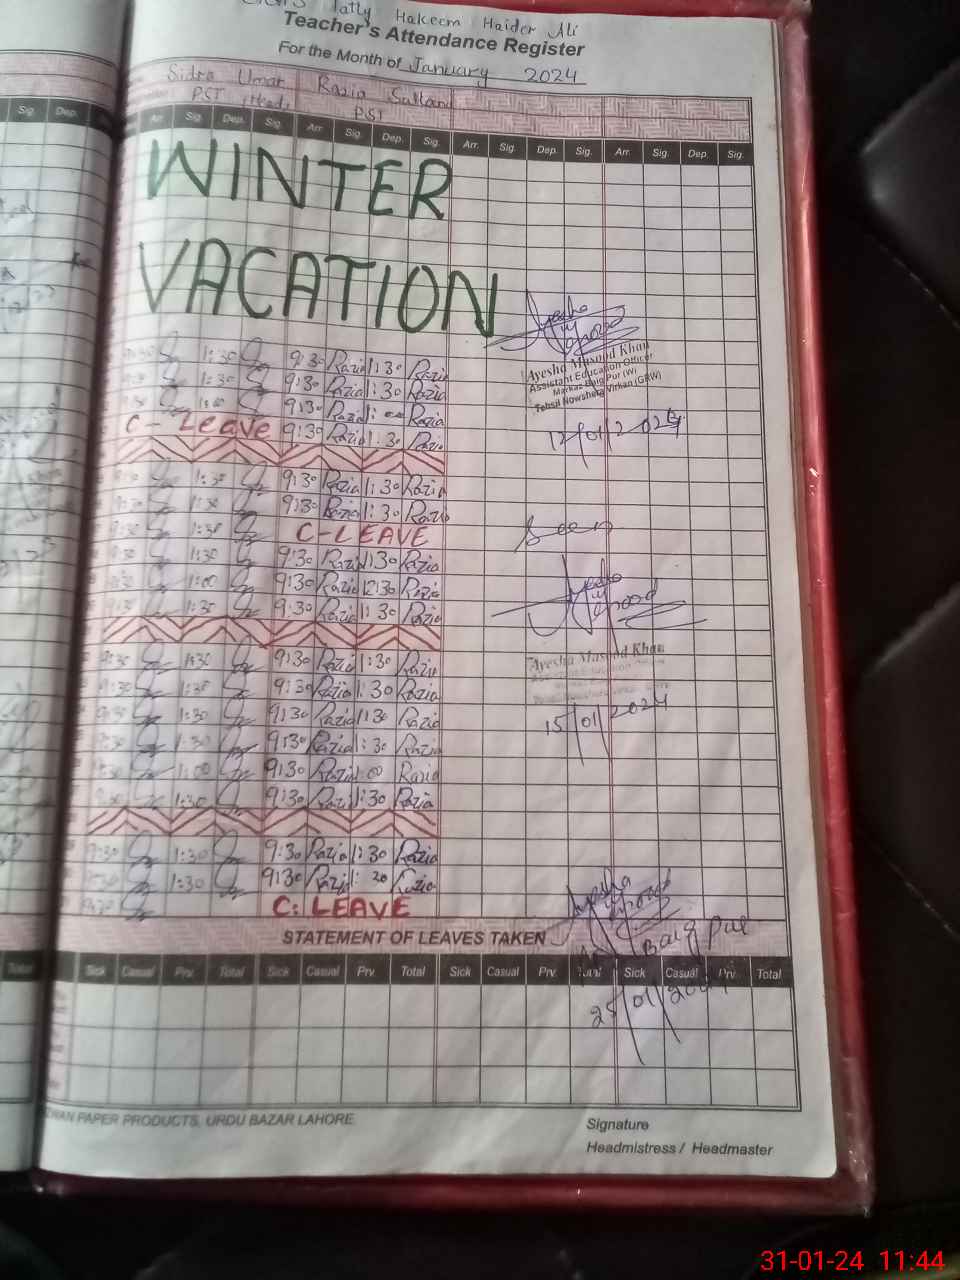 Jatty Hakeem Haider Ali
Teacher's Attendance Register
For the Month of January 2024
Sidra Umar Razia Sultana
PST (Head) PST
Sig. Dep.
Arr. Sig. Dep. Sig. Arr. Sig. Dep. Sig. Arr. Sig. Dep. Sig. Arr. Sig. Dep. Sig.
WINTER
VACATION
Ayesha Masood
9:30 1:30 9:30 Razia 1:30 Razia
Ayesha Masood Khan
Assistant Education Officer
Markaz Baig Pur (W)
Tehsil Nowshera Virkan (GRW)
9:30 1:30 9:30 Razia 1:30 Razia
9:30 1:00 9:30 Razia 1:00 Razia
C-Leave 9:30 Razia 1:30 Razia
12/01/2024
9:30 1:30 9:30 Razia 1:30 Razia
9:30 1:30 9:30 Razia 1:30 Razia
9:30 1:30 C-LEAVE
Seen
9:30 1:30 9:30 Razia 1:30 Razia
9:30 1:00 9:30 Razia 12:30 Razia
Ayesha Masood
9:30 1:30 9:30 Razia 1:30 Razia
9:30 1:30 9:30 Razia 1:30 Razia
Ayesha Masood Khan
9:30 1:30 9:30 Razia 1:30 Razia
9:30 1:30 9:30 Razia 1:30 Razia
15/01/2024
9:30 1:30 9:30 Razia 1:30 Razia
9:30 1:00 9:30 Razia 1:00 Razia
9:30 1:30 9:30 Razia 1:30 Razia
9:30 1:30 9:30 Razia 1:30 Razia
9:30 1:30 9:30 Razia 1:30 Razia
9:30 C:LEAVE
Ayesha Masood
Baig Pur
STATEMENT OF LEAVES TAKEN
Total Sick Casual Prv. Total Sick Casual Prv. Total Sick Casual Prv. Total Sick Casual Prv. Total
25/01/2024
PAPER PRODUCTS, URDU BAZAR LAHORE
Signature
Headmistress / Headmaster
31-01-24 11:44